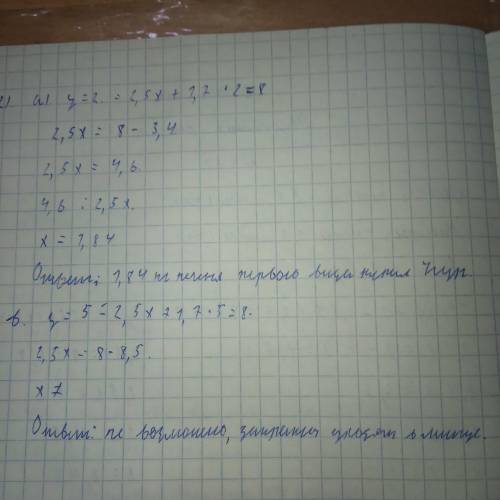 а) y = 2. = 2,5x + 1,7 · 2 = 8
2,5x = 8 - 3,4
2,5x = 4,6
4,6 : 2,5x.
x = 1,84
Ответ: 1,84 кг первого вида купил
в. y = 5 = 2,5x + 1,7 · 5 = 8.
2,5x = 8 - 8,5.
x 7
Ответ: не возможно, уходят в минус.